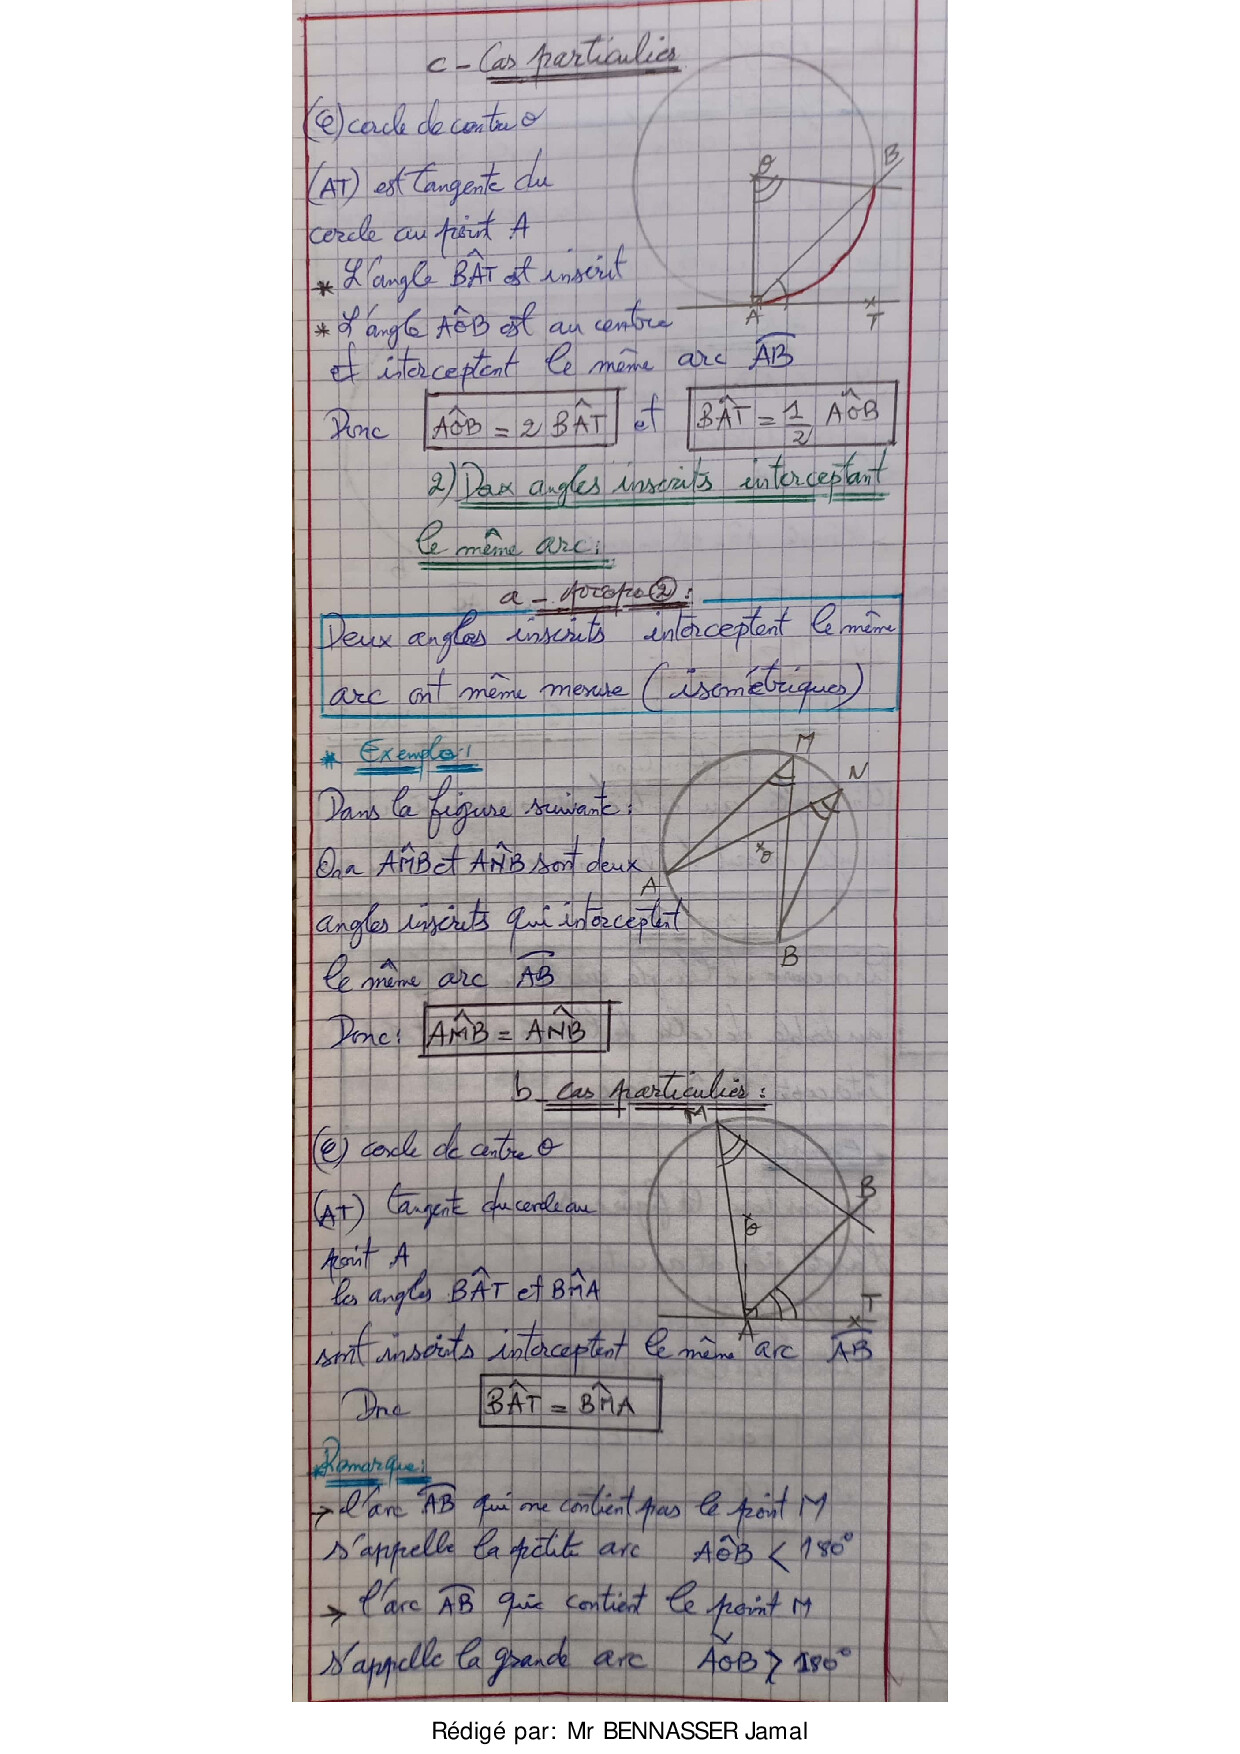 c - Cas particulier
(C) cercle de centre O
(AT) est tangente du
cercle au point A
* L'angle BÂT est inscrit
* L'angle AÔB est au centre
et interceptent le même arc AB
Donc AÔB = 2 BÂT et BÂT = 1/2 AÔB
O
B
A
T
2) Deux angles inscrits interceptant
le même arc :
a - propo ② :
Deux angles inscrits interceptent le même
arc ont même mesure (isométriques)
* Exemple :
Dans la figure suivante :
On a AM̂B et AN̂B sont deux
angles inscrits qui interceptent
le même arc AB
Donc : AM̂B = AN̂B
M
N
O
A
B
b - Cas particulier :
(C) cercle de centre O
(AT) tangent du cercle au
point A
les angles BÂT et BM̂A
sont inscrits interceptent le même arc AB
Donc BÂT = BM̂A
M
B
O
A
T
* Remarque :
→ l'arc AB qui ne contient pas le point M
s'appelle la petite arc AÔB < 180°
→ l'arc AB qui contient le point M
s'appelle la grande arc AǑB > 180°
Rédigé par: Mr BENNASSER Jamal